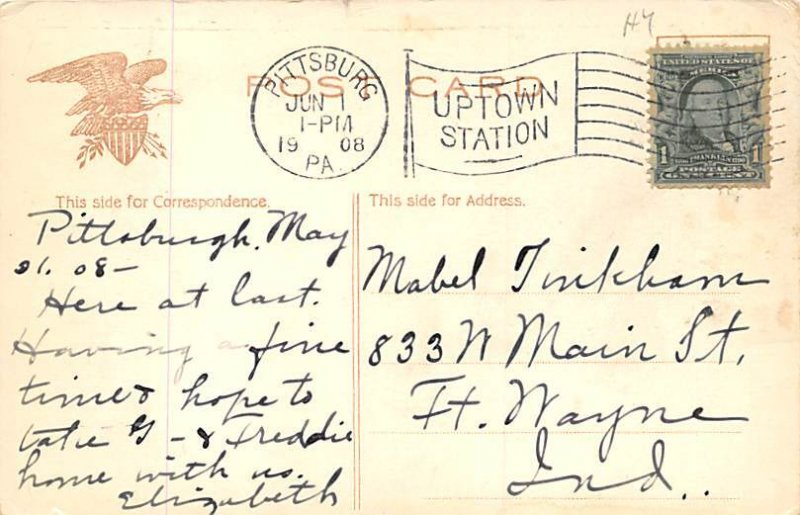 H4
POST CARD
PITTSBURG
JUN 1
1-PM
1908
PA.
UPTOWN
STATION
UNITED STATES OF
AMERICA
1 FRANKLIN 1
POSTAGE
ONE CENT
This side for Correspondence.
Pittsburgh, May
31. 08–
Here at last.
Having a fine
time & hope to
take G– & Freddie
home with us.
Elizabeth
This side for Address.
Mabel Tinkham
833 W Main St,
Ft. Wayne
Ind.